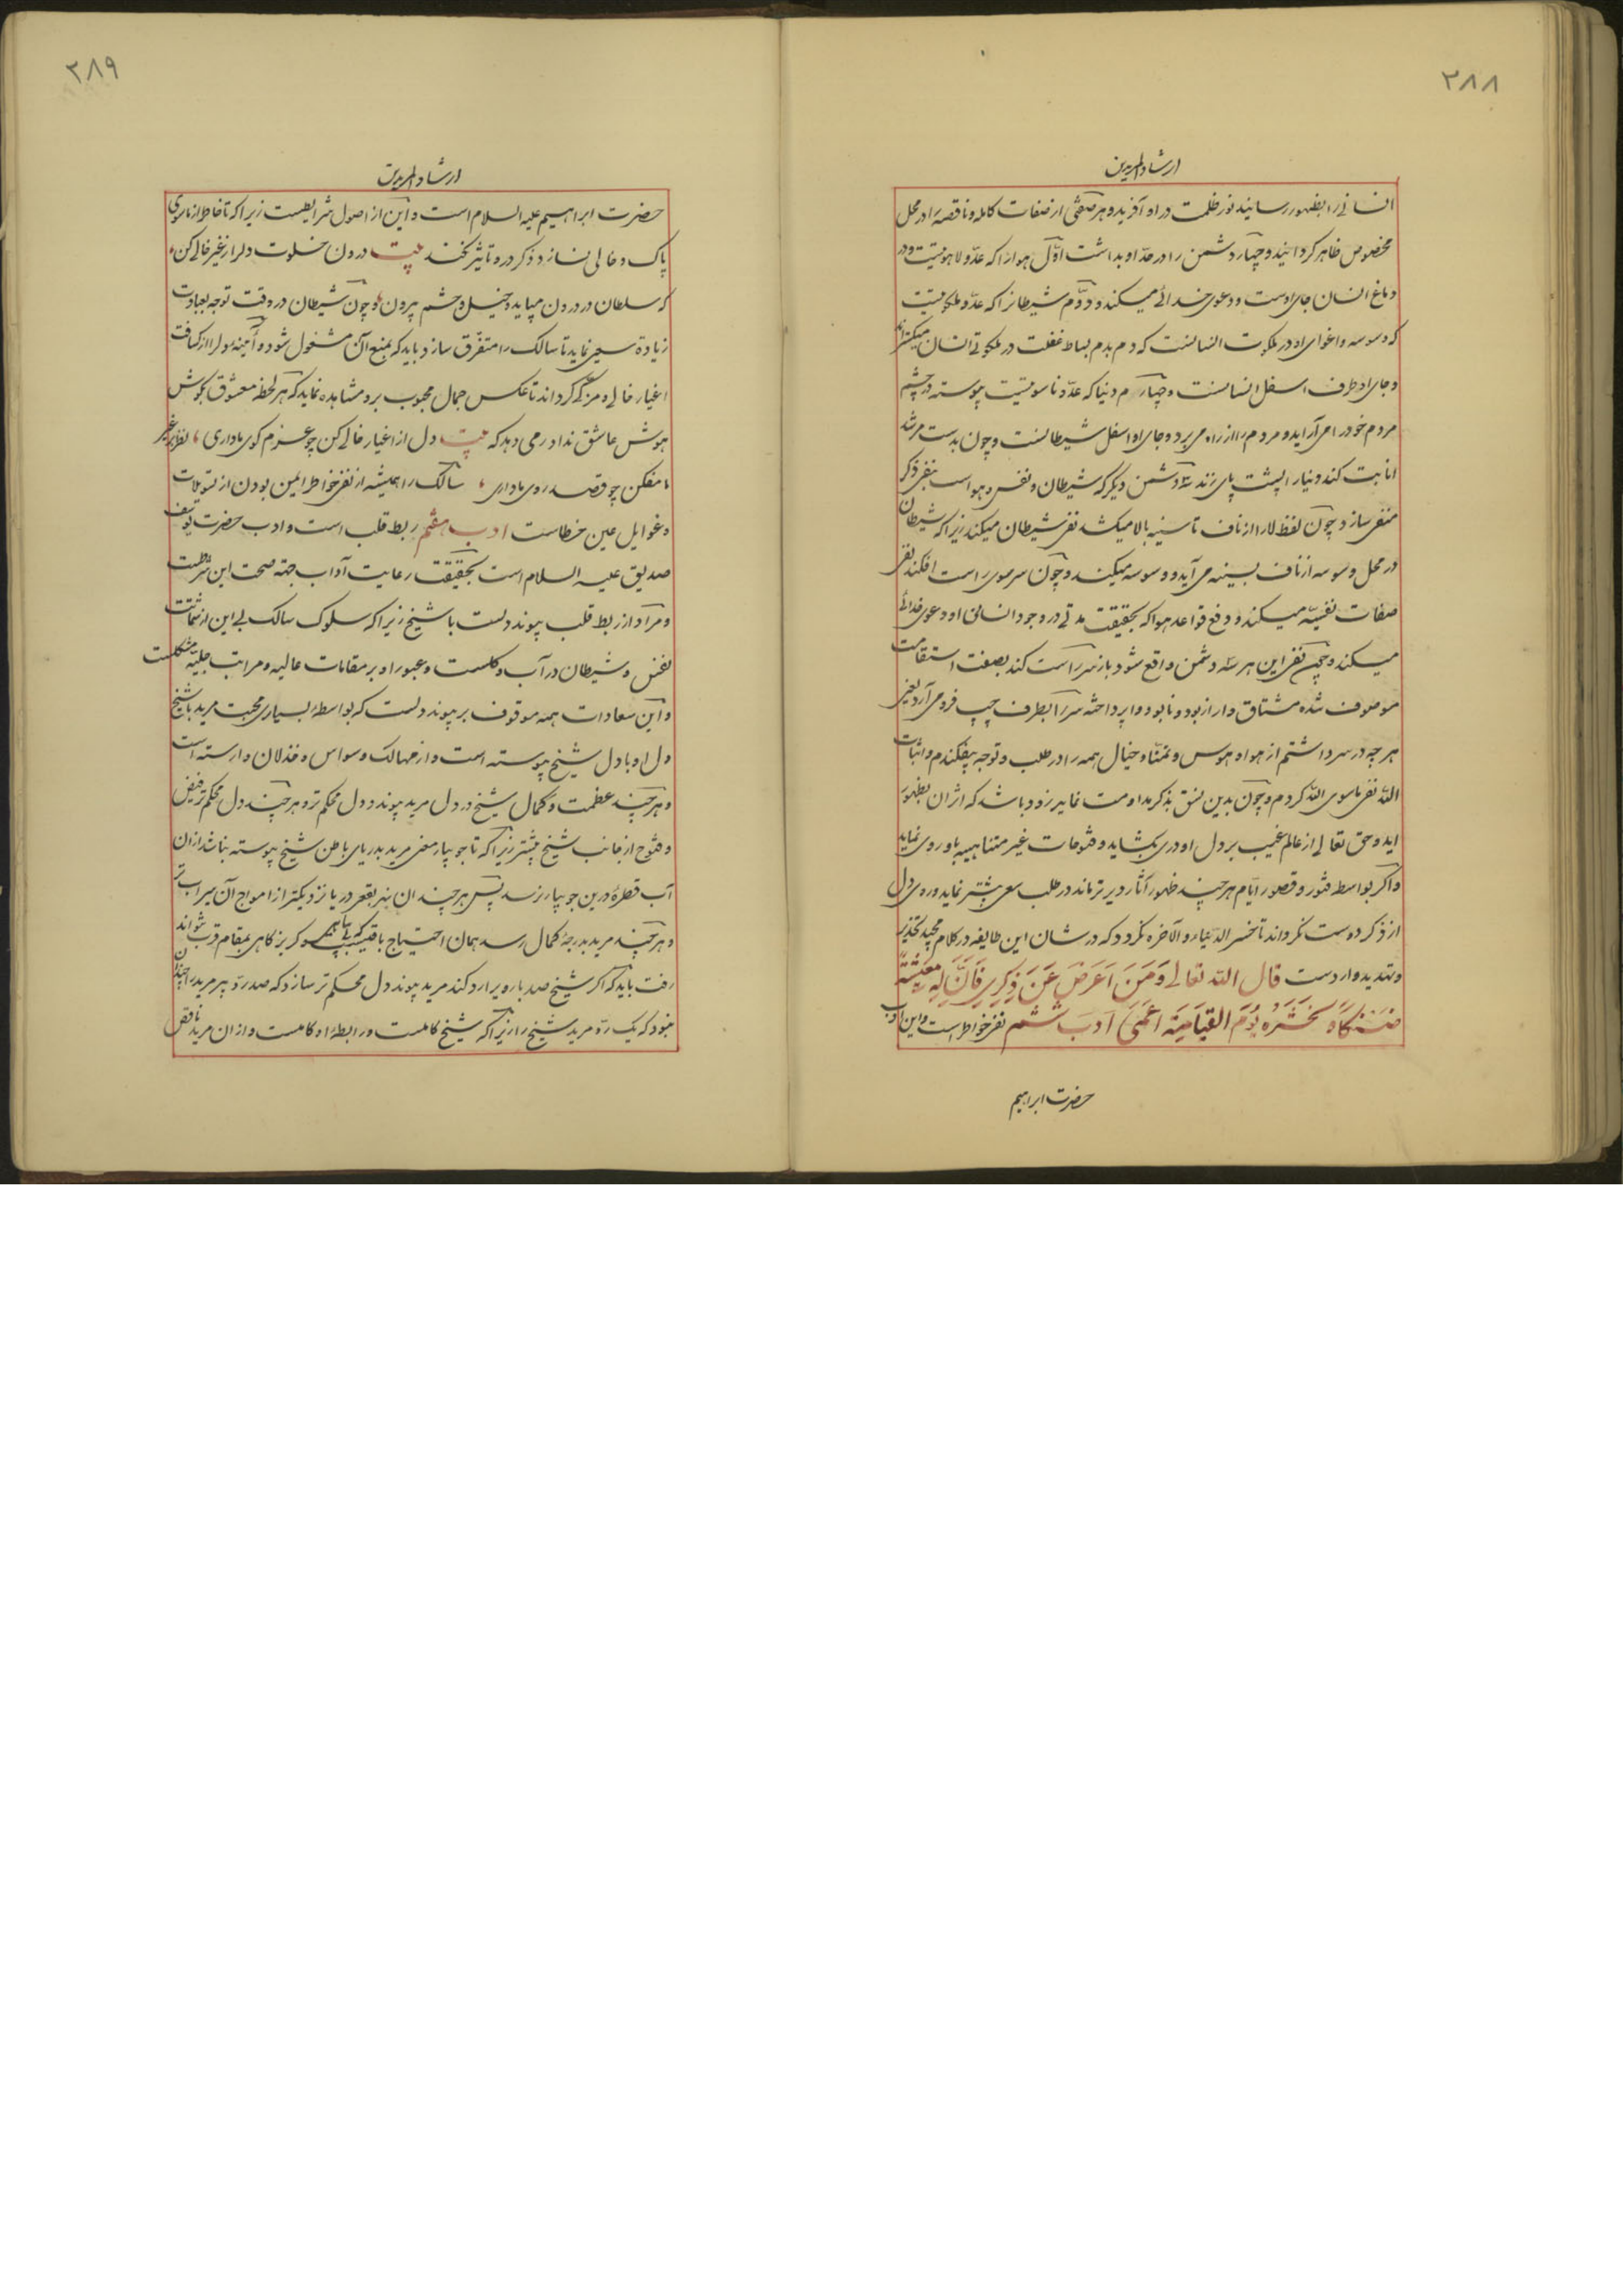 ۲۸۸
ارشاد المریدین
انسانی را بظهور رسانید نور ظلمت در او آفرید و هر صفتی از صفات کامله و ناقصه را در محل
مخصوص ظاهر گردانید و چهار دشمن را در حد او بداشت اوّل هوا را که عدّو لاهوتیست و در
دماغ انسان جای اوست و دعوی خدائی میکند و دوّم شیطانرا که عدّو ملکوتیست
که وسوسه و اغوای او در ملکوت انسانست که دم بدم بساط غفلت در ملکوتی انسان میگستراند
و جای او طرف اسفل انسانست و چهارم دنیا که عدّو ناسوتیست پیوسته در چشم
مردم خود را می آراید و مردم را از راه می برد و جای او اسفل شیطانست و چون بدست مرشد
انابت کند و دنیا را پشت پای زند سه دشمن دیگر که شیطان و نفس و هواست بنفی ذکر
منفی سازد چون لفظ لا را از ناف تا سینه بالا میکشد نفی شیطان میکند زیرا که شیطان
در محل وسوسه از ناف بسینه می آید و وسوسه میکند و چون سر موی راست افکند نفی
صفات نفسیّه میکند و دفع قواعد هوا که بحقیقت مدتی در وجود انسانی او دعوی خدائی
میکند و چون نفی این هر سه دشمن واقع شود باز سر راست کند بصفت استقامت
موصوف شده مشتاق وار از بود و نابود وا پرداخته سر را بطرف چپ فرو می آرد یعنی
هر چه در سر داشتم از هوا و هوس و تمنّا و خیال همه را در طلب و توجه بیفکندم و اثبات
اللّه نفی ماسوی اللّه کردم و چون بدین نسق بذکر مداومت نماید زود باشد که اثر آن بظهور
اید و حق تعالی از عالم غیب بر دل او دری بگشاید و فتوحات غیر متناهیه باو روی نماید
و اگر بواسطه فتور و قصور ایّام هر چند ظهور آثار دیرتر ماند در طلب سعی بیشتر نماید و روی دل
از ذکر دوست نگرداند تا خسر الدنیا و الآخره نگردد که در شان این طایفه در کلام مجید تحذیر
و تهدید وارد ست قال اللّه تعالی وَمَنْ اَعْرَضَ عَنْ ذِکْرِی فَاِنَّ لَهُ مَعِیْشَةً
ضَنْکًا وَ نَحْشُرُهُ یَوْمَ القِیَامَةِ اَعْمَیٰ اَدَب ششم نفی خواطر است و این ادب
حضرت ابراهیم
۲۸۹
ارشاد المریدین
حضرت ابراهیم علیه السلام است و این از اصول شرایطست زیرا که تا خاطر از ماسوی
پاک و خالی نسازد ذکر درو تاثیر نکند بیت درون خلوت دل از غیر خالی کن
که سلطان در درون میاید و خیل و حشم بیرون و چون شیطان در وقت توجه بعبادت
زیادة سعی نماید تا سالک را متفرق سازد باید که بمنع آن مشغول شود و آئینه دل را از کثافت
اغیار خالی و مزکی گرداند تا عکس جمال محبوب برو مشاهده نماید که هر لحظه معشوق بگوش
هوش عاشق ندا در می دهد که بیت دل از اغیار خالی کن چو عزم کوی ما داری نظر بر غیر
ما مفکن چو قصد روی ما داری سالک را همیشه از نفی خواطر ایمن بودن از تسویلات
و غوایل عین خطاست ادب هفتم ربط قلب است و ادب حضرت یوسف
صدیق علیه السلام است بحقیقت رعایت آداب جهة صحت این شرطست
و مراد از ربط قلب پیوند دلست با شیخ زیرا که سلوک سالک بی این از شماتت
نفس و شیطان در آب و گلست و عبور او بر مقامات عالیه و مراتب جلیّه مشکلست
و این سعادات همه موقوف بر پیوند دلست که بواسطهٔ بسیاری محبت مرید با شیخ
دل او با دل شیخ پیوسته است و از مهالک وسواس و خذلان وارسته است
و هر چند عظمت و کمال شیخ در دل مرید پیوند دل محکم تر و هر چند دل محکم تر فیض
و فتوح از جانب شیخ بیشتر زیرا که تا جویبار معنی مرید بدریای باطن شیخ پیوسته نباشد از ان
آب قطرهٔ درین جویبار نرسد پس هر چند ان نهر بقعر دریا نزدیکتر از امواج آن سیراب تر
و هر چند مرید بدرجهٔ کمال رسد همان احتیاج باقیست که بی گریزگاهی بمقام قرب نتواند
رفت باید که اگر شیخ صد بار ویرا رد کند مرید پیوند دل محکم تر سازد که صد ردّ پیر مرید را چندان
نبود که یک ردّ مرید شیخ را زیرا که شیخ کاملست و رابطهٔ او کاملست و از ان مرید ناقص